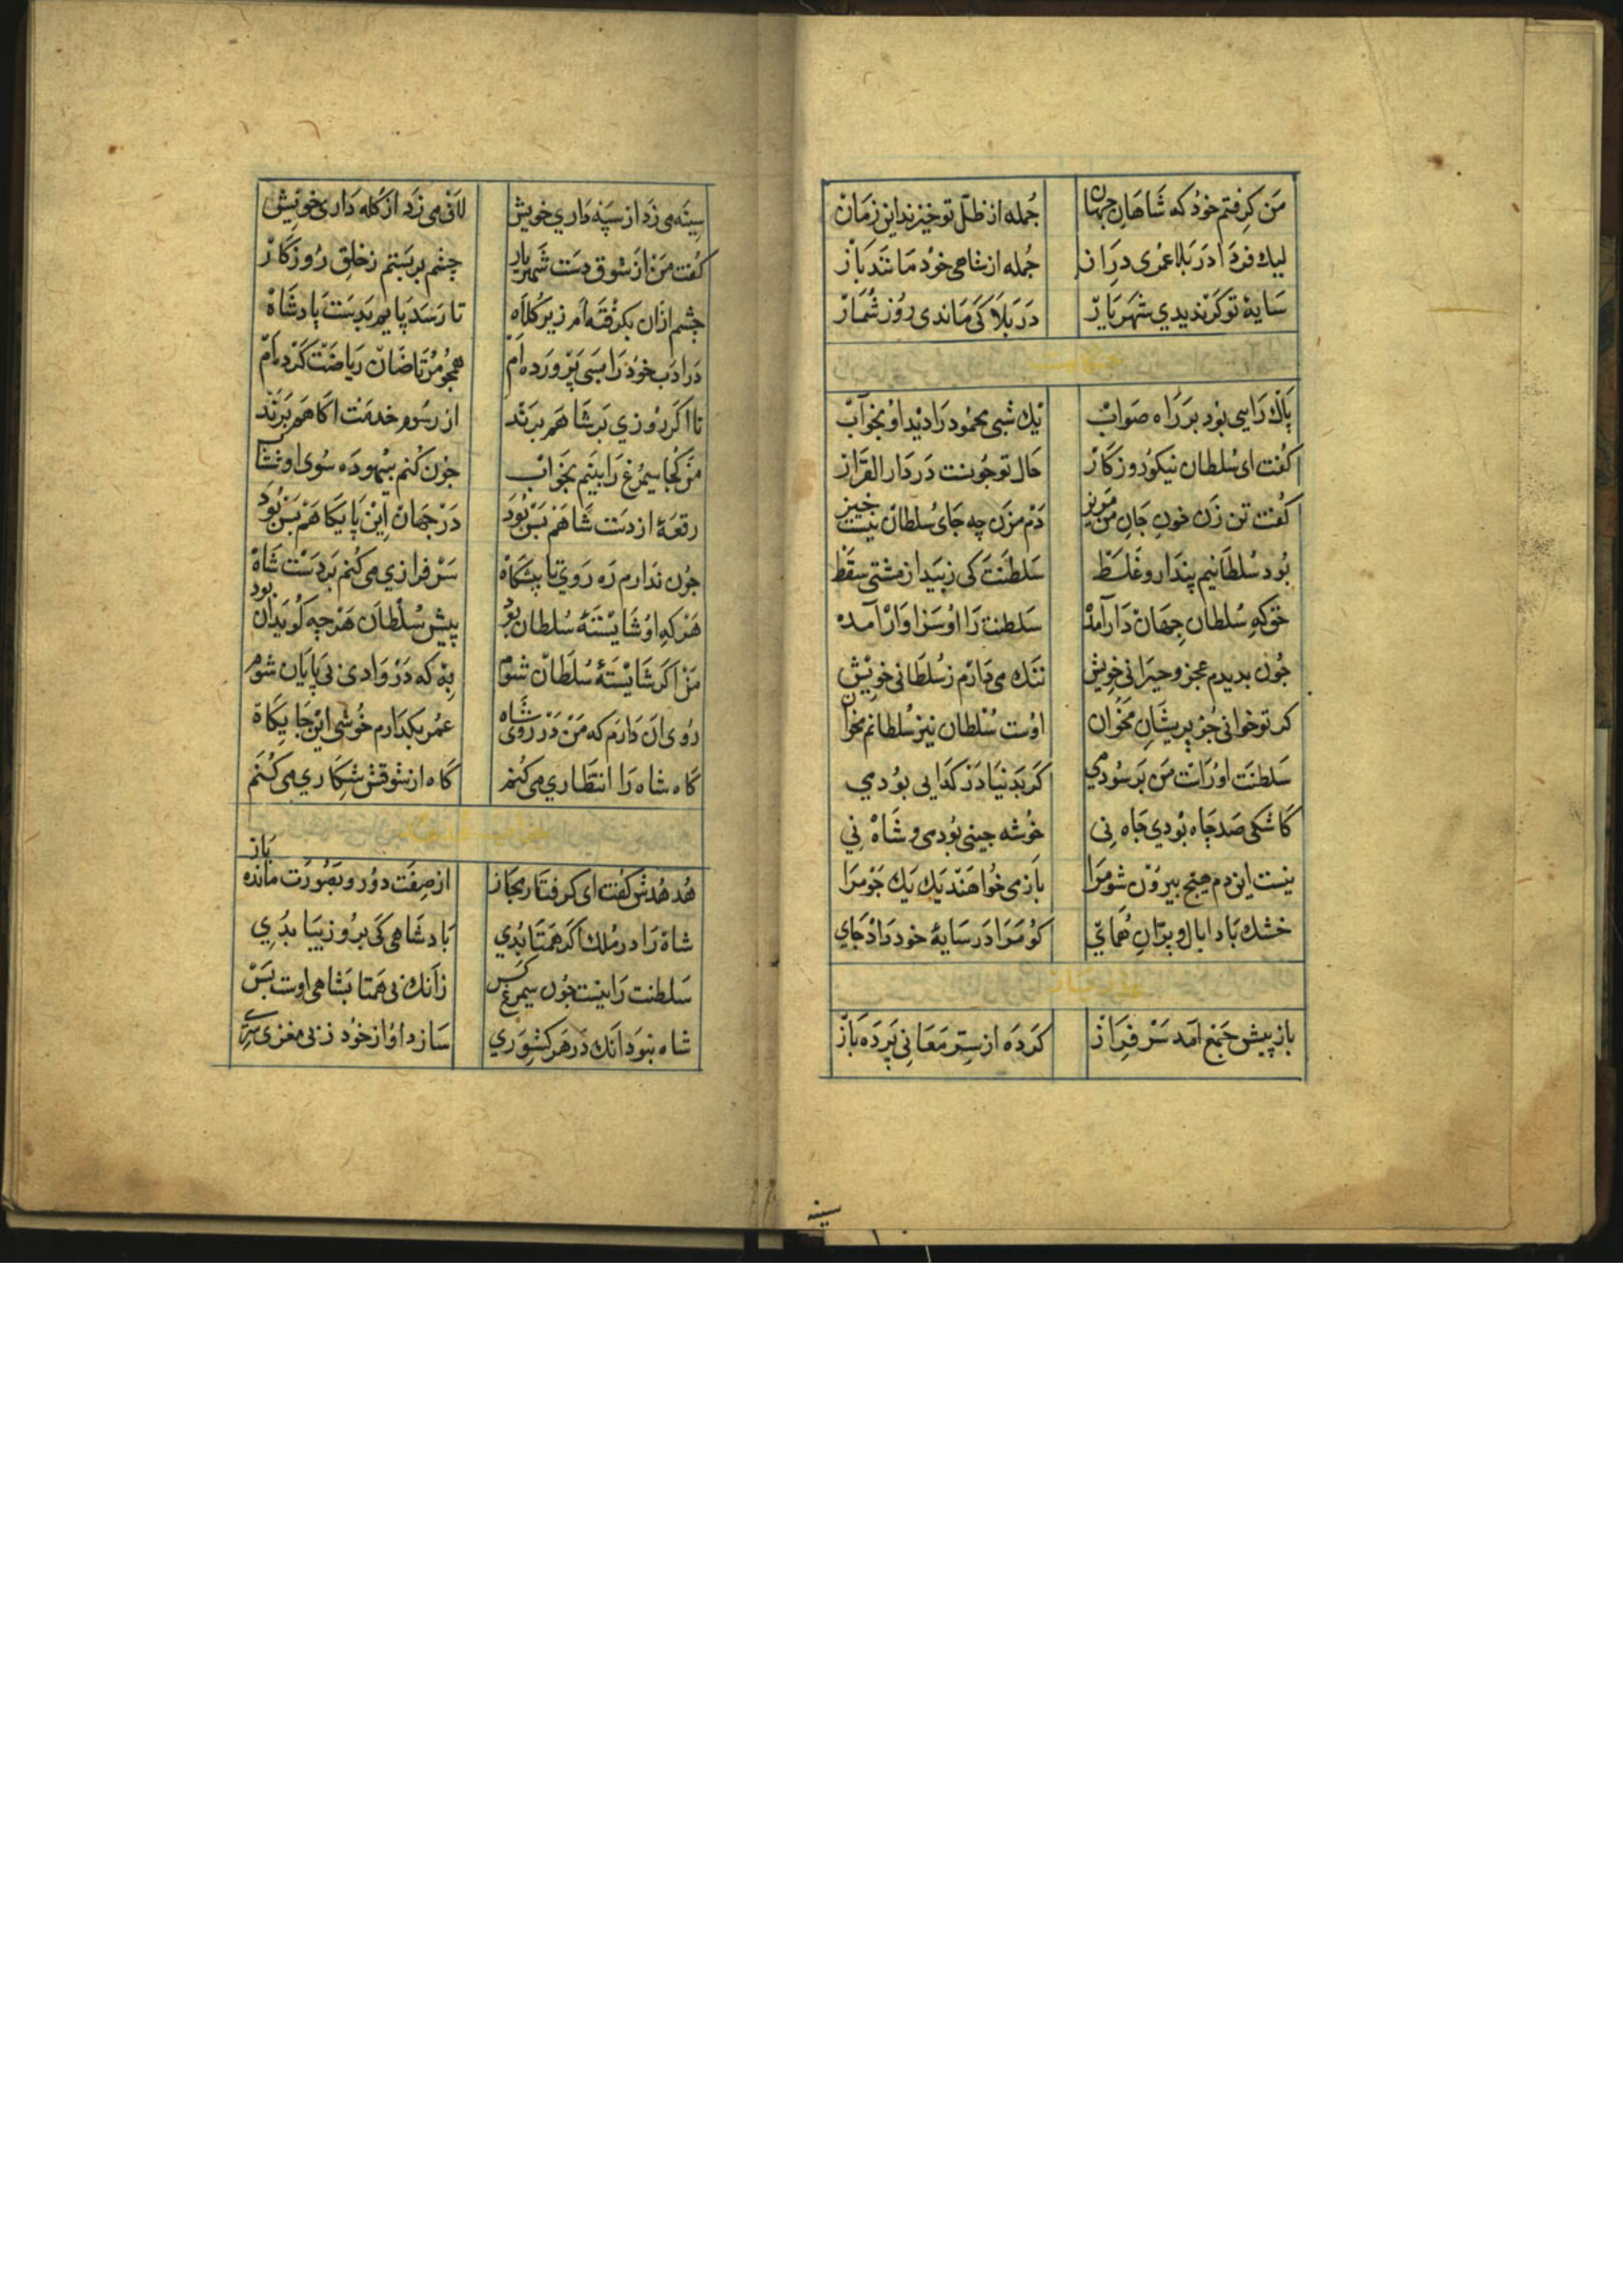 مَن کرفتم خود که شاهان جهان جمله از ظل تو خیزند این زمان
لیك فردا در بلا عمری دراز جمله از شاهی خود مانند باز
سایهٔ تو کر ندیدی شهریار در بلا کی ماندی روز شمار
پاك رایی بود بر راه صواب یك شبی محمود را دید او بخواب
کفت ای سلطان نیکو روزکار حال تو جونست در دار القرار
کفت تن زن خون جان من مریز دم مزن چه جای سلطان نیست خیز
بود سلطانیم پندار و غلط سلطنت کی زیبد از مشتی سقط
حق که سلطان جهان دار آمد سلطنت را او سزاوار آمده
جون بدیدم عجز و حیرانی خویش ننك می دارم ز سلطانی خویش
کر تو خوانی جز پریشان مخوان اوست سلطان نیز سلطانم مخوان
سلطنت اوراست من بر سودمی کر بدنیا در کدایی بودمی
کاشکی صد چاه بودی جاه نی خوشه جینی بودمی و شاه نی
نیست این دم هیچ بیرون شو مرا باز می خواهند یك یك جو مرا
خشك بادا بال و بر آن همای کو مرا در سایهٔ خود داد جای
باز پیش جمع آمد سر فراز کرده از ستر معانی پرده باز
سینه
سینه می زد از سپه داری خویش لاف می زد از کله داری خویش
کفت من از شوق دست شهریار چشم بر بستم ز خلق روزکار
چشم ازان بکرفته ام زیر کلاه تا رسد پایم بدست پادشاه
در ادب خود را بسی پرورده ام همجو مرتاضان ریاضت کرده ام
تا اکر روزی بر شاهم برند از رسوم خدمت اکاهم برند
من کجا سیمرغ را بینم بخواب جون کنم بیهوده سوی او شتاب
رقعهٔ از دست شاهم بس بود در جهان این پایکاهم بس بود
جون ندارم ره روی تا پیشکاه سر فرازی می کنم بر دست شاه
هر که او شایستهٔ سلطان بود پیش سلطان هر چه کوید آن بود
من اکر شایستهٔ سلطان شوم به که در وادی بی پایان شوم
روی آن دارم که من در روی شاه عمر بکذارم خوشی این جایکاه
کاه شاه را انتظاری می کنم کاه از شوقش شکاری می کنم
هدهدش کفت ای کرفتار مجاز از صفت دور و بصورت مانده باز
شاه را در ملك اکر همتا بدی بادشاهی کی برو زیبا بدی
سلطنت را نیست جون سیمرغ کس زانك بی همتا بشاهی اوست بس
شاه نبود آنك در هر کشوری سازد او از خود ز بی مغزی سری